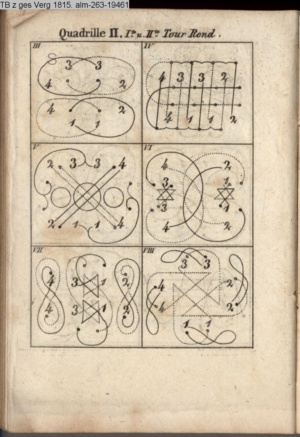 TB z ges Verg 1815. alm-263-19461
Quadrille II. I.ᵗᵉ u. II.ᵗᵉ Tour Rond.
III IV
3 3
4 2
4 2
1 1
4 3 3 2
4 1 1 2
V VI
2 3 3 4
2 1 1 4
4 2
3 1
3 1
4 2
VII VIII
4 3 1 2
4 3 1 2
3 3
4 2
4 2
1 1